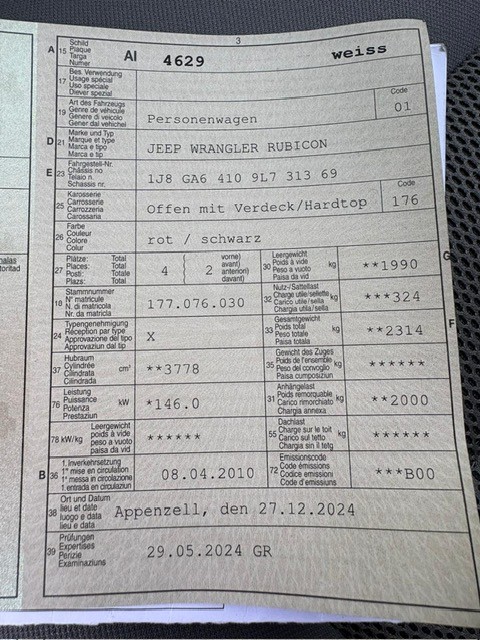 3
A 15 Schild
Plaque
Targa
Numer
AI 4629 weiss
17 Bes. Verwendung
Usage spécial
Uso speciale
Diever spezial
19 Art des Fahrzeugs
Genre de véhicule
Genere di veicolo
Gener dal vehichel
Personenwagen
Code
01
D 21 Marke und Typ
Marque et type
Marca e tipo
Marca e tip
JEEP WRANGLER RUBICON
E 23 Fahrgestell-Nr.
Châssis no
Telaio n.
Schassis nr.
1J8 GA6 410 9L7 313 69
25 Karosserie
Carrosserie
Carrozzeria
Carossaria
Offen mit Verdeck/Hardtop
Code
176
26 Farbe
Couleur
Colore
Colur
rot / schwarz
27 Plätze: Total
Places: Total
Posti: Totale
Plazs: Total
4 2
vorne)
avant)
anteriori)
davant)
30 Leergewicht
Poids à vide
Peso a vuoto
Paisa da vid
kg
**1990
G
18 Stammnummer
N° matricule
N. di matricola
Nr. da matricla
177.076.030
32 Nutz-/Sattellast
Charge utile/sellette
Carico utile/sella
Chargia utila/sella
kg
***324
24 Typengenehmigung
Réception par type
Approvazione del tipo
Approvaziun dal tip
X
33 Gesamtgewicht
Poids total
Peso totale
Paisa totala
kg
**2314
F
37 Hubraum
Cylindrée
Cilindrata
Cilindrada
cm³
**3778
35 Gewicht des Zuges
Poids de l'ensemble
Peso del convoglio
Paisa cumposiziun
kg
******
76 Leistung
Puissance
Potenza
Prestaziun
kW
*146.0
31 Anhängelast
Poids remorquable
Carico rimorchiato
Chargia annexa
kg
**2000
78 kW/kg
Leergewicht
poids à vide
peso a vuoto
paisa da vid
******
55 Dachlast
Charge sur le toit
Carico sul tetto
Chargia sin il tetg
kg
******
B 36 1. Inverkehrsetzung
1re mise en circulation
1a messa in circolazione
1. entrada en circulaziun
08.04.2010
72 Emissionscode
Code émissions
Codice emissioni
Code d'emissiuns
***B00
38 Ort und Datum
lieu et date
luogo e data
lieu e data
Appenzell, den 27.12.2024
39 Prüfungen
Expertises
Perizie
Examinaziuns
29.05.2024 GR